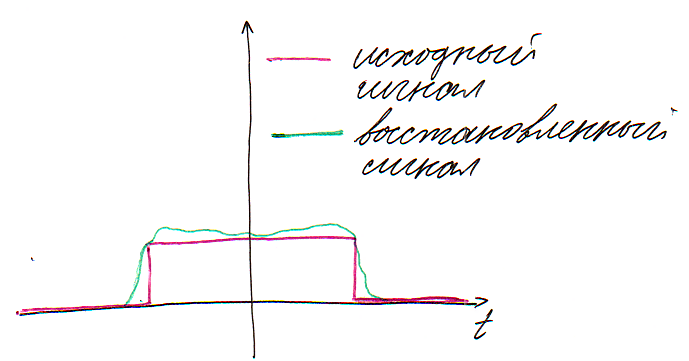 исходный
сигнал
восстановленный
сигнал
t